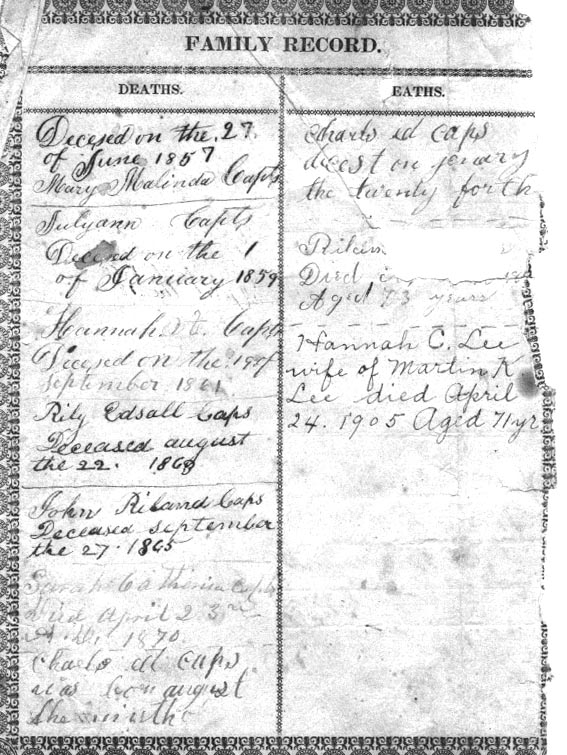 FAMILY RECORD.
DEATHS.
Decesed on the 27
of June 1857
Mary Malinda Capts
Julyann Capts
Decesd on the 1
of January 1859
Hannah E. Capts
Decesed on the 19 of
september 1861
Rily Edsall Caps
Deceased august
the 22. 1868
John Riland Caps
Deceased september
the 27. 1865
Sarah Catherine Caps
Died April 23rd
A. D. 1870.
Charls at caps
was born august
the ninth
EATHS.
Charls ed caps
decest on jenuary
the twenty forth
Died
Aged 73 years
Hannah C. Lee
wife of Martin K
Lee died April
24. 1905 Aged 71 yr